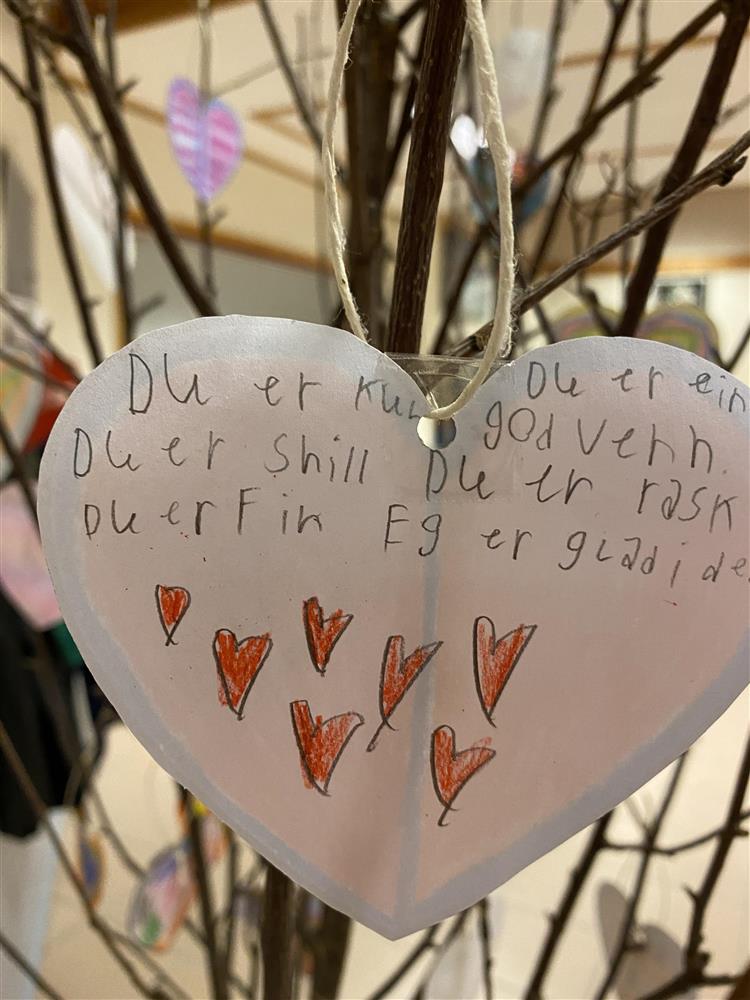 Du er kul
Du er snill
Du er Fin
Du er ein
god venn.
Du er rask
Eg er glad i